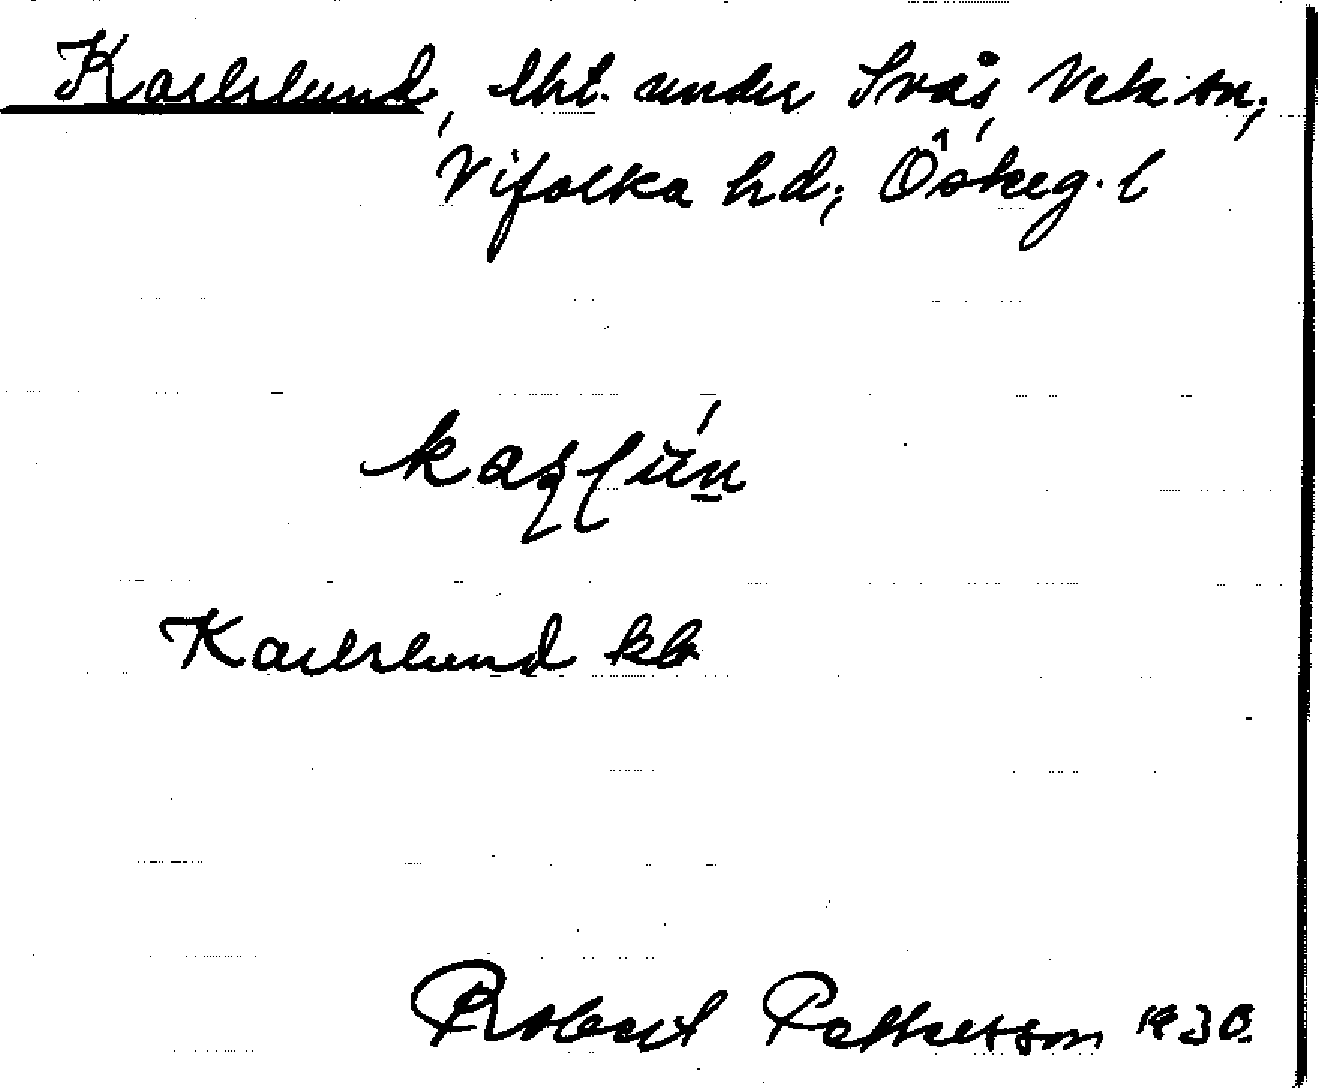 Karlslund, lht. under Svås, Veta sn,
Vifolka hd, Östeg. l
Karlslund kb
Robert Pettersson 1930